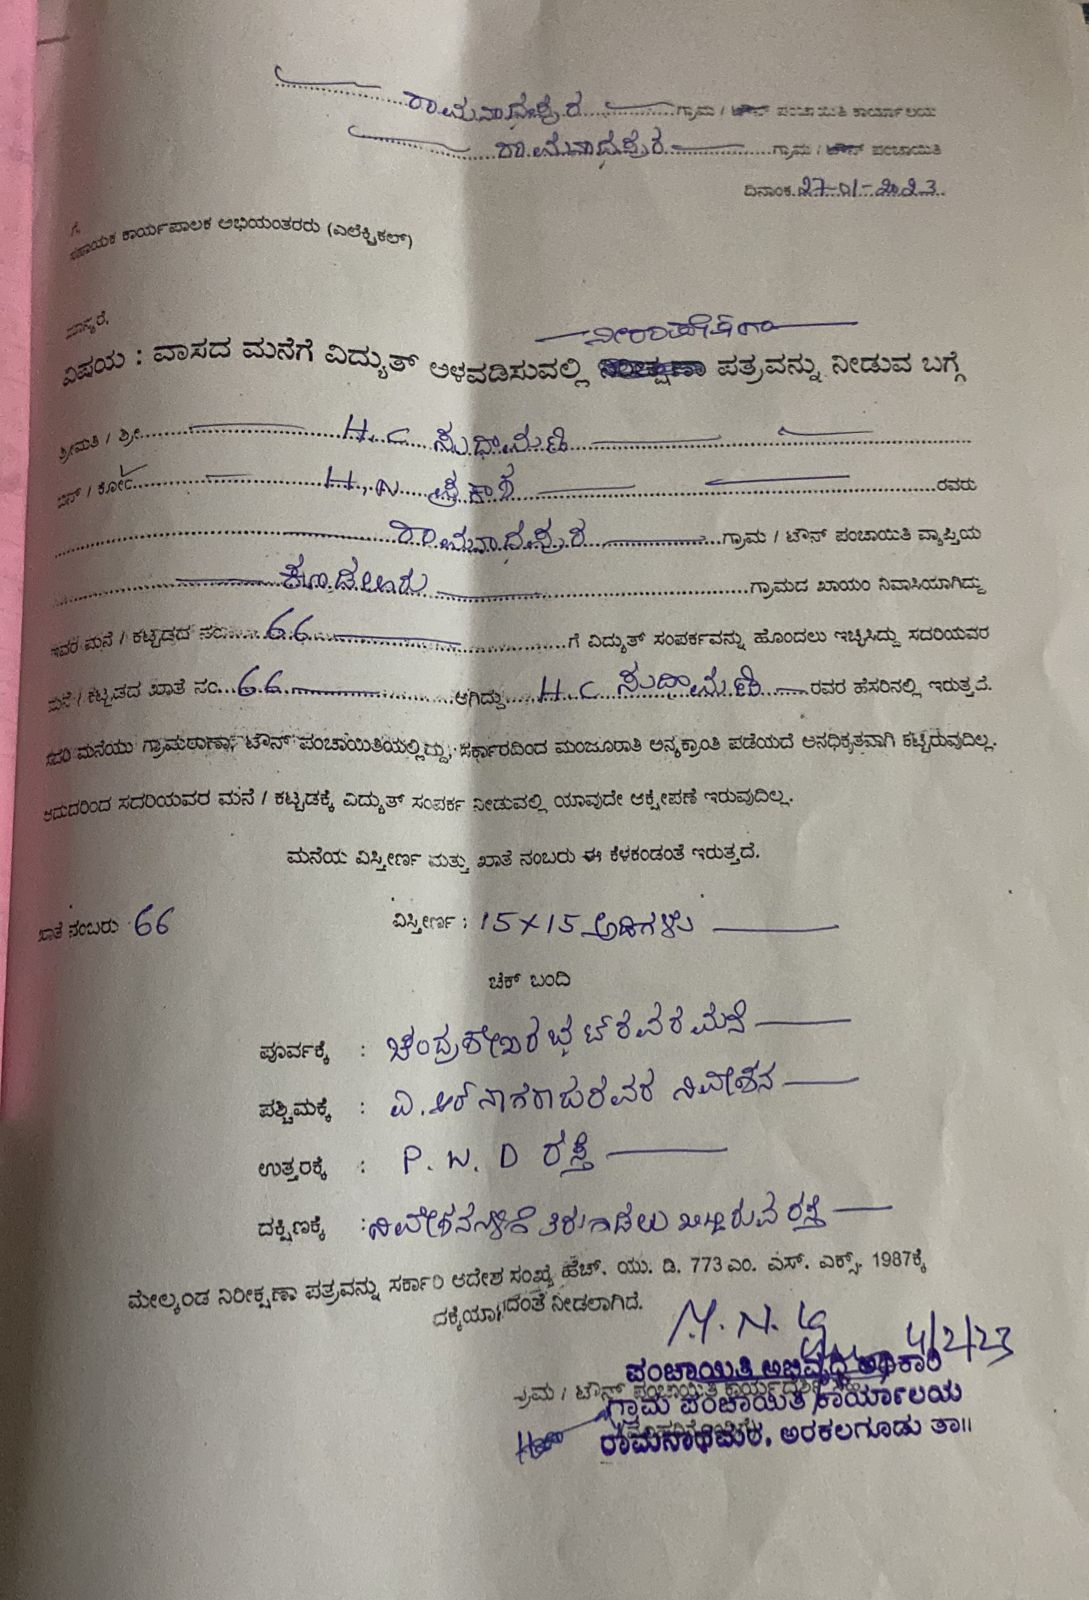 ರಾಮನಾಥಪುರ ಗ್ರಾಮ / ಟೌನ್ ಪಂಚಾಯಿತಿ ಕಾರ್ಯಾಲಯ
ರಾಮನಾಥಪುರ ಗ್ರಾಮ / ಟೌನ್ ಪಂಚಾಯಿತಿ
ದಿನಾಂಕ 27-01-2023
ಗೆ,
ಸಹಾಯಕ ಕಾರ್ಯಪಾಲಕ ಅಭಿಯಂತರರು (ಎಲೆಕ್ಟ್ರಿಕಲ್)
ಮಾನ್ಯರೆ,
ನಿರಾಕ್ಷೇಪಣಾ
ವಿಷಯ : ವಾಸದ ಮನೆಗೆ ವಿದ್ಯುತ್ ಅಳವಡಿಸುವಲ್ಲಿ ಪತ್ರವನ್ನು ನೀಡುವ ಬಗ್ಗೆ
ಶ್ರೀಮತಿ / ಶ್ರೀ H.C ಸುಧಾಮಣಿ
ಬಿನ್ / ಕೋಂ H.N ಪ್ರಕಾಶ ರವರು
ರಾಮನಾಥಪುರ ಗ್ರಾಮ / ಟೌನ್ ಪಂಚಾಯಿತಿ ವ್ಯಾಪ್ತಿಯ
ಗ್ರಾಮದ ಖಾಯಂ ನಿವಾಸಿಯಾಗಿದ್ದು
ಇವರ ಮನೆ / ಕಟ್ಟಡದ ನಂ. 66 ಗೆ ವಿದ್ಯುತ್ ಸಂಪರ್ಕವನ್ನು ಹೊಂದಲು ಇಚ್ಛಿಸಿದ್ದು ಸದರಿಯವರ
ಮನೆ / ಕಟ್ಟಡದ ಖಾತೆ ನಂ. 66 ಆಗಿದ್ದು H.C ಸುಧಾಮಣಿ ರವರ ಹೆಸರಿನಲ್ಲಿ ಇರುತ್ತದೆ.
ಸದರಿ ಮನೆಯು ಗ್ರಾಮಠಾಣಾ, ಟೌನ್ ಪಂಚಾಯಿತಿಯಲ್ಲಿದ್ದು, ಸರ್ಕಾರದಿಂದ ಮಂಜೂರಾತಿ ಅನ್ಯಕ್ರಾಂತಿ ಪಡೆಯದೆ ಅನಧಿಕೃತವಾಗಿ ಕಟ್ಟಿರುವುದಿಲ್ಲ.
ಆದುದರಿಂದ ಸದರಿಯವರ ಮನೆ / ಕಟ್ಟಡಕ್ಕೆ ವಿದ್ಯುತ್ ಸಂಪರ್ಕ ನೀಡುವಲ್ಲಿ ಯಾವುದೇ ಆಕ್ಷೇಪಣೆ ಇರುವುದಿಲ್ಲ.
ಮನೆಯ ವಿಸ್ತೀರ್ಣ ಮತ್ತು ಖಾತೆ ನಂಬರು ಈ ಕೆಳಕಂಡಂತೆ ಇರುತ್ತದೆ.
ಖಾತೆ ನಂಬರು 66 ವಿಸ್ತೀರ್ಣ : 15 X 15 ಅಡಿಗಳು
ಚೆಕ್ ಬಂದಿ
ಪೂರ್ವಕ್ಕೆ : ಚಂದ್ರಶೇಖರ ಭಟ್ ರವರ ಮನೆ
ಪಶ್ಚಿಮಕ್ಕೆ : ವಿ. ಆರ್ ನಾಗರಾಜರವರ ನಿವೇಶನ
ಉತ್ತರಕ್ಕೆ : P. W. D ರಸ್ತೆ
ದಕ್ಷಿಣಕ್ಕೆ : ನಿವೇಶನಗಳಿಗೆ ತಿರುಗಾಡಲು ಬಿಟ್ಟಿರುವ ರಸ್ತೆ
ಮೇಲ್ಕಂಡ ನಿರೀಕ್ಷಣಾ ಪತ್ರವನ್ನು ಸರ್ಕಾರಿ ಆದೇಶ ಸಂಖ್ಯೆ ಹೆಚ್. ಯು. ಡಿ. 773 ಎಂ. ಎಸ್. ಎಕ್ಸ್. 1987ಕ್ಕೆ
ನೀಡಲಾಗಿದೆ.
4/2/23
ಪಂಚಾಯಿತಿ ಅಭಿವೃದ್ಧಿ ಅಧಿಕಾರಿ
ಗ್ರಾಮ ಪಂಚಾಯಿತಿ ಕಾರ್ಯಾಲಯ
ರಾಮನಾಥಪುರ, ಅರಕಲಗೂಡು ತಾ॥